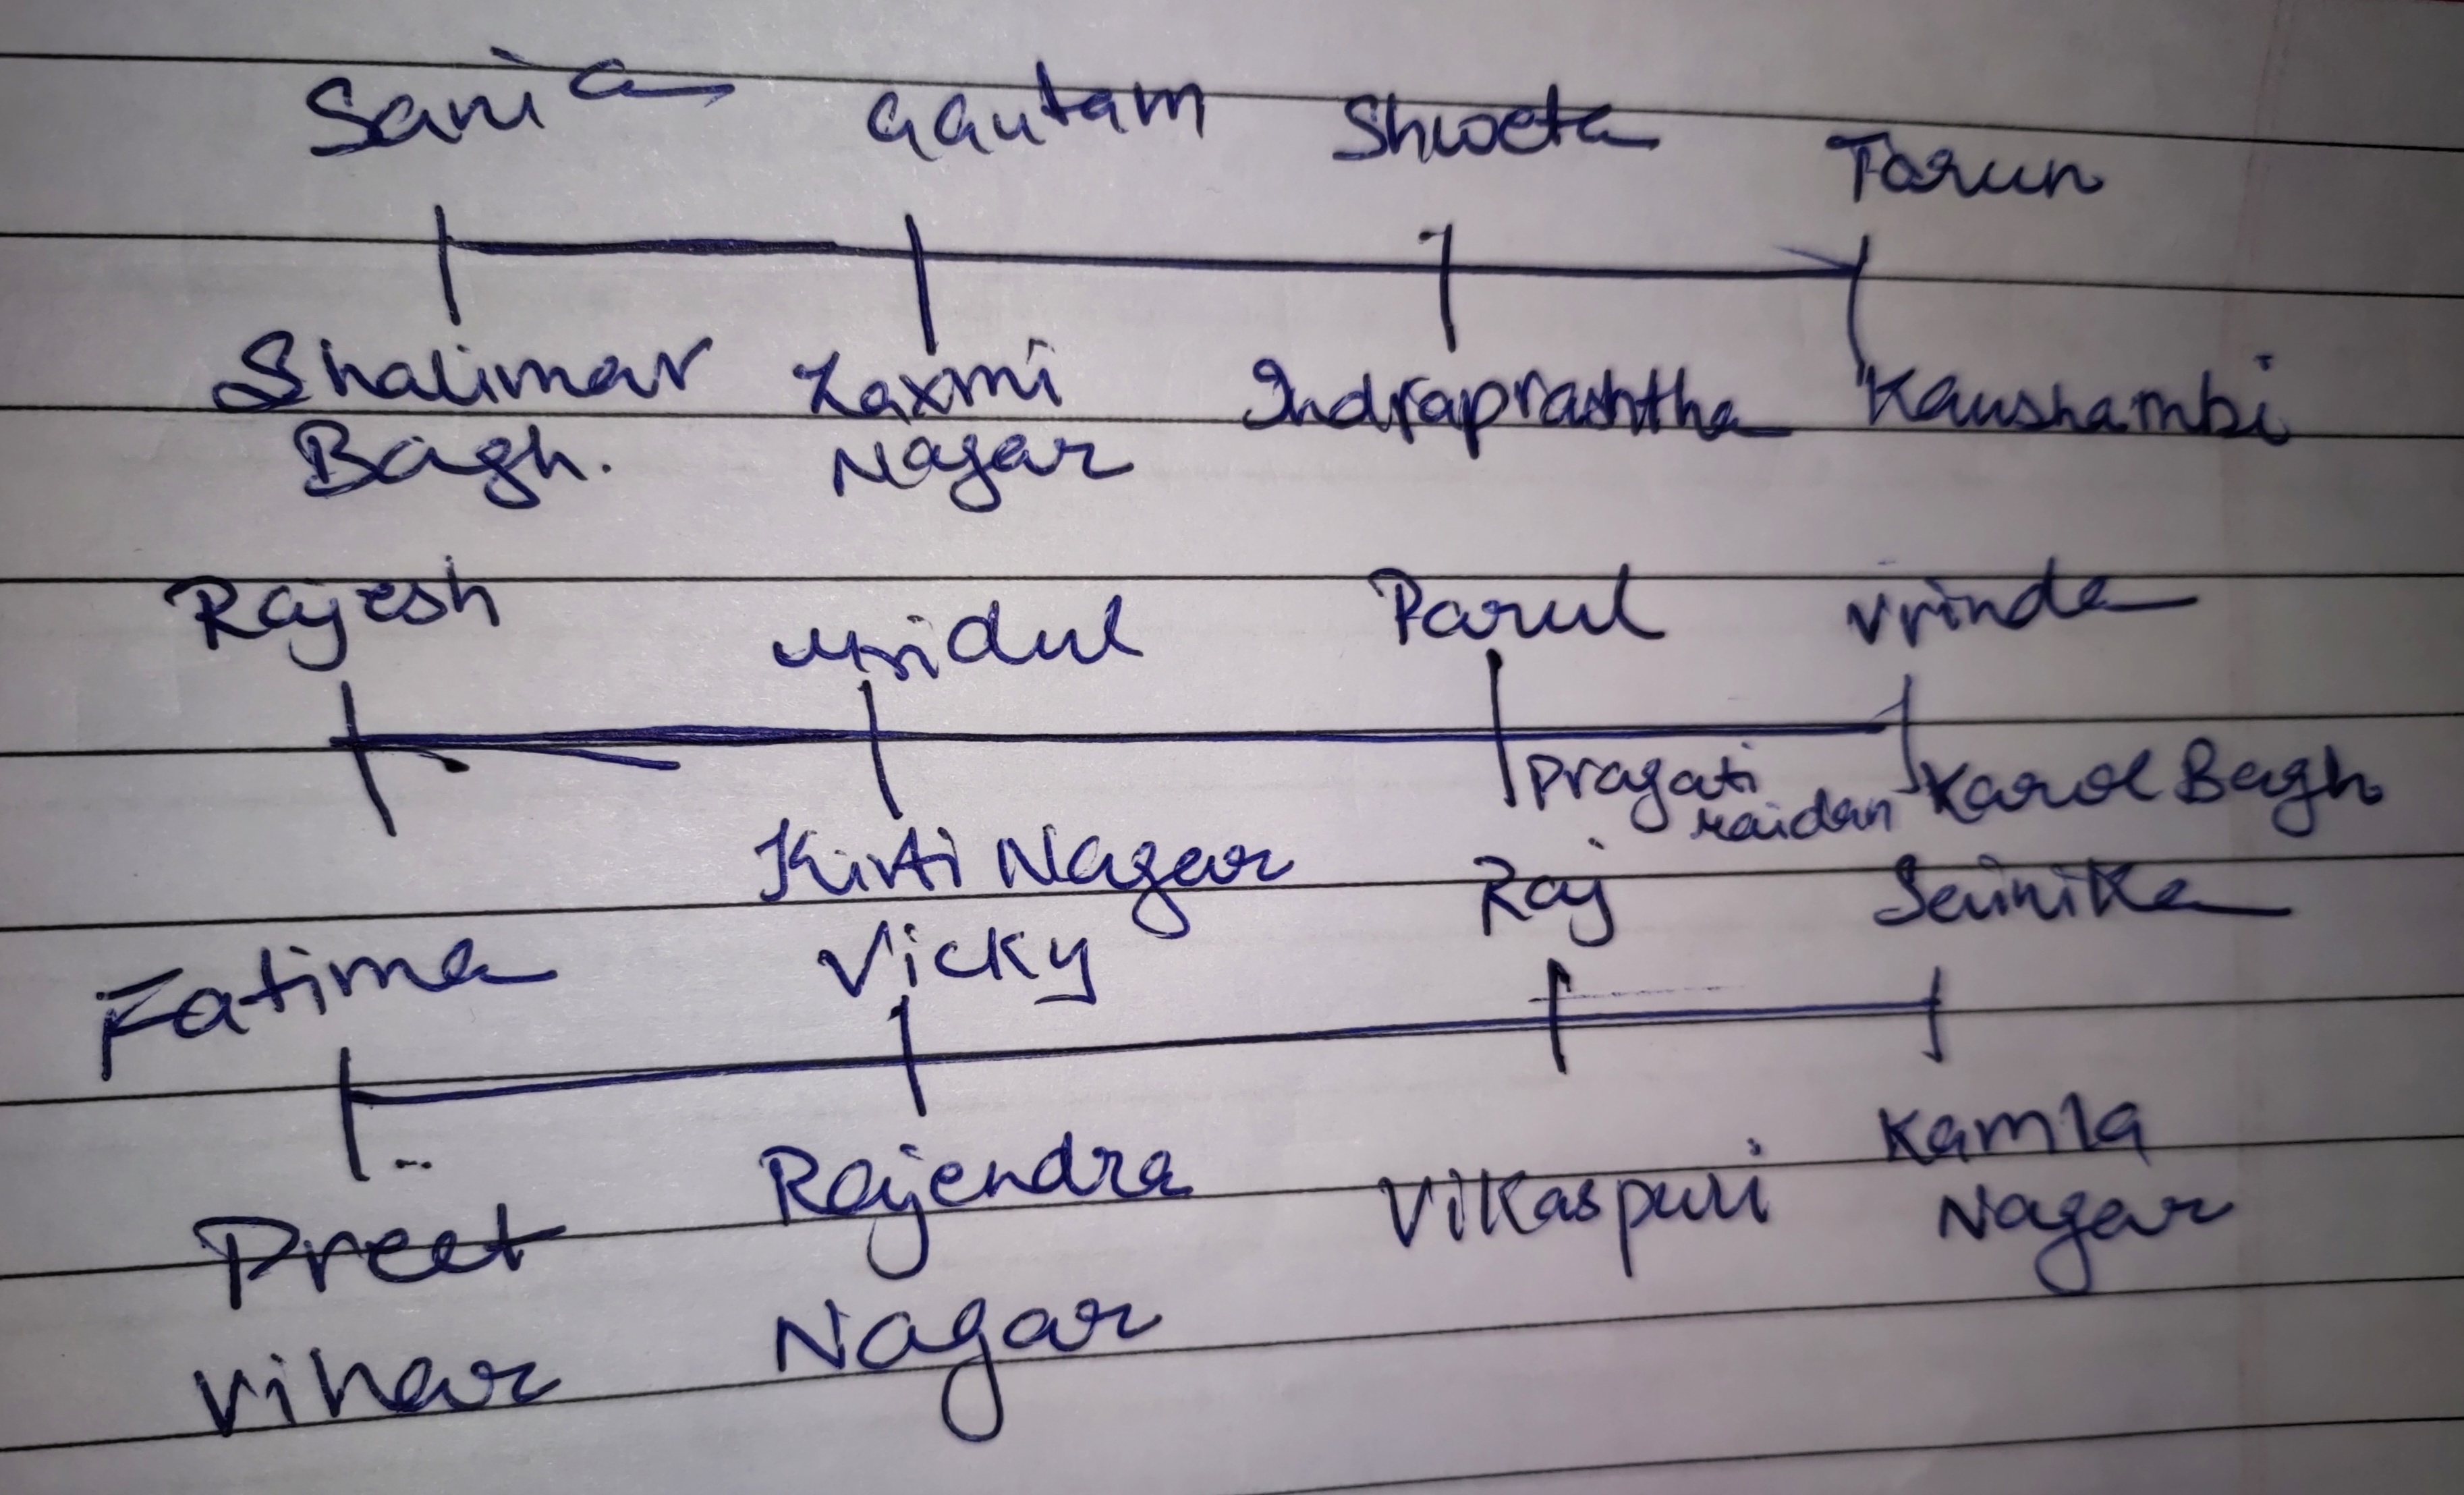 Sania Gautam Shweta Tarun
Shalimar Laxmi Indraprashtha Kaushambi
Bagh. Nagar
Rajesh Mridul Parul Vrinda
Pragati Karol Bagh
Maidan
Kirti Nagar
Fatima Vicky Raj
Preet Rajendra Vikaspuri Kamla
Vihar Nagar Nagar